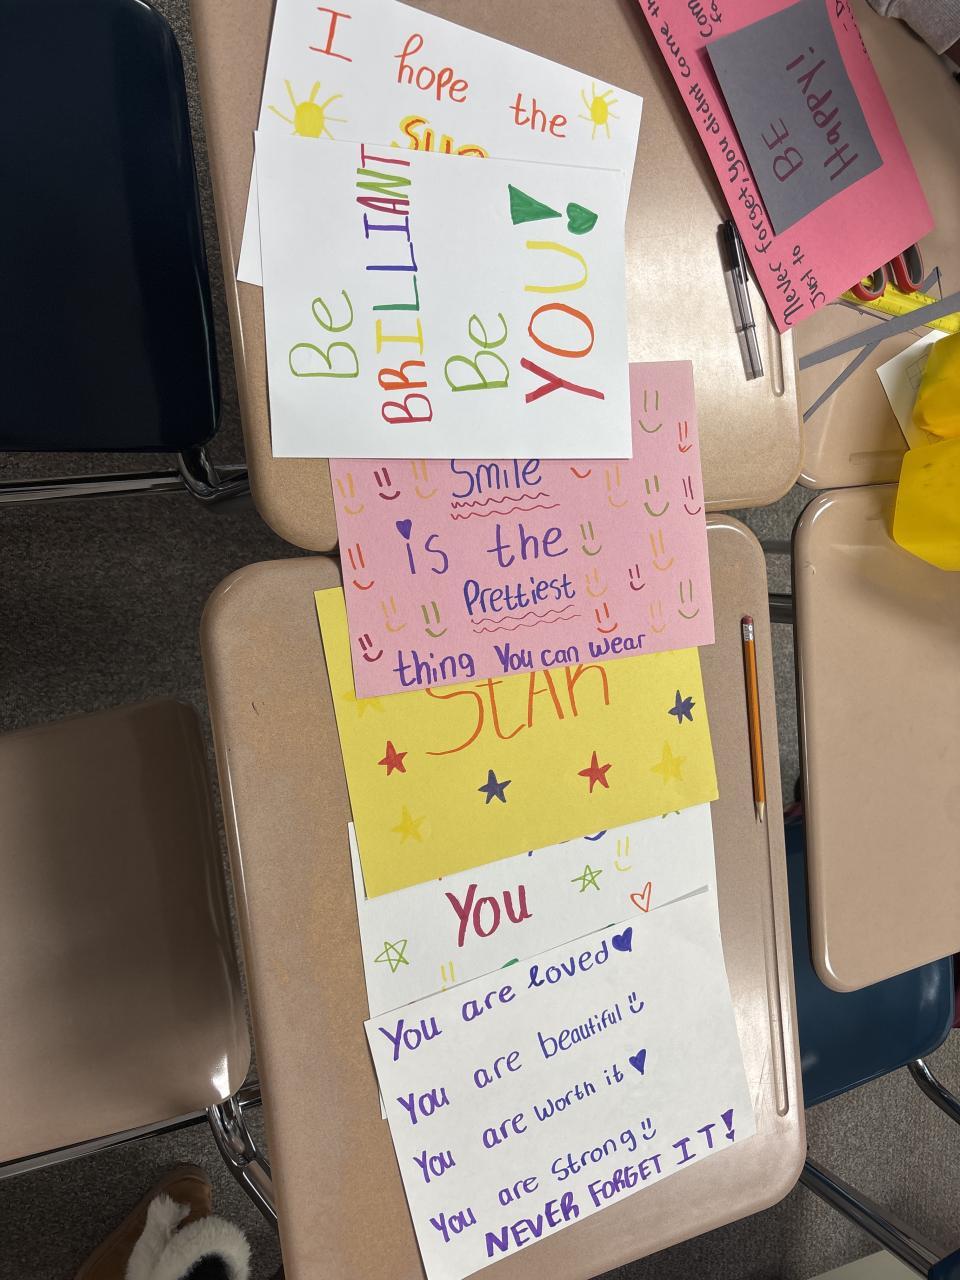 I hope the
Sun
Be
BRILLIANT
Be
YOU!
Never forget, you didn't come th
Just to
BE
Happy!
Smile
is the
Prettiest
thing You can wear
StAR
You
You are loved
You are beautiful
You are worth it
You are Strong
NEVER FORGET IT!